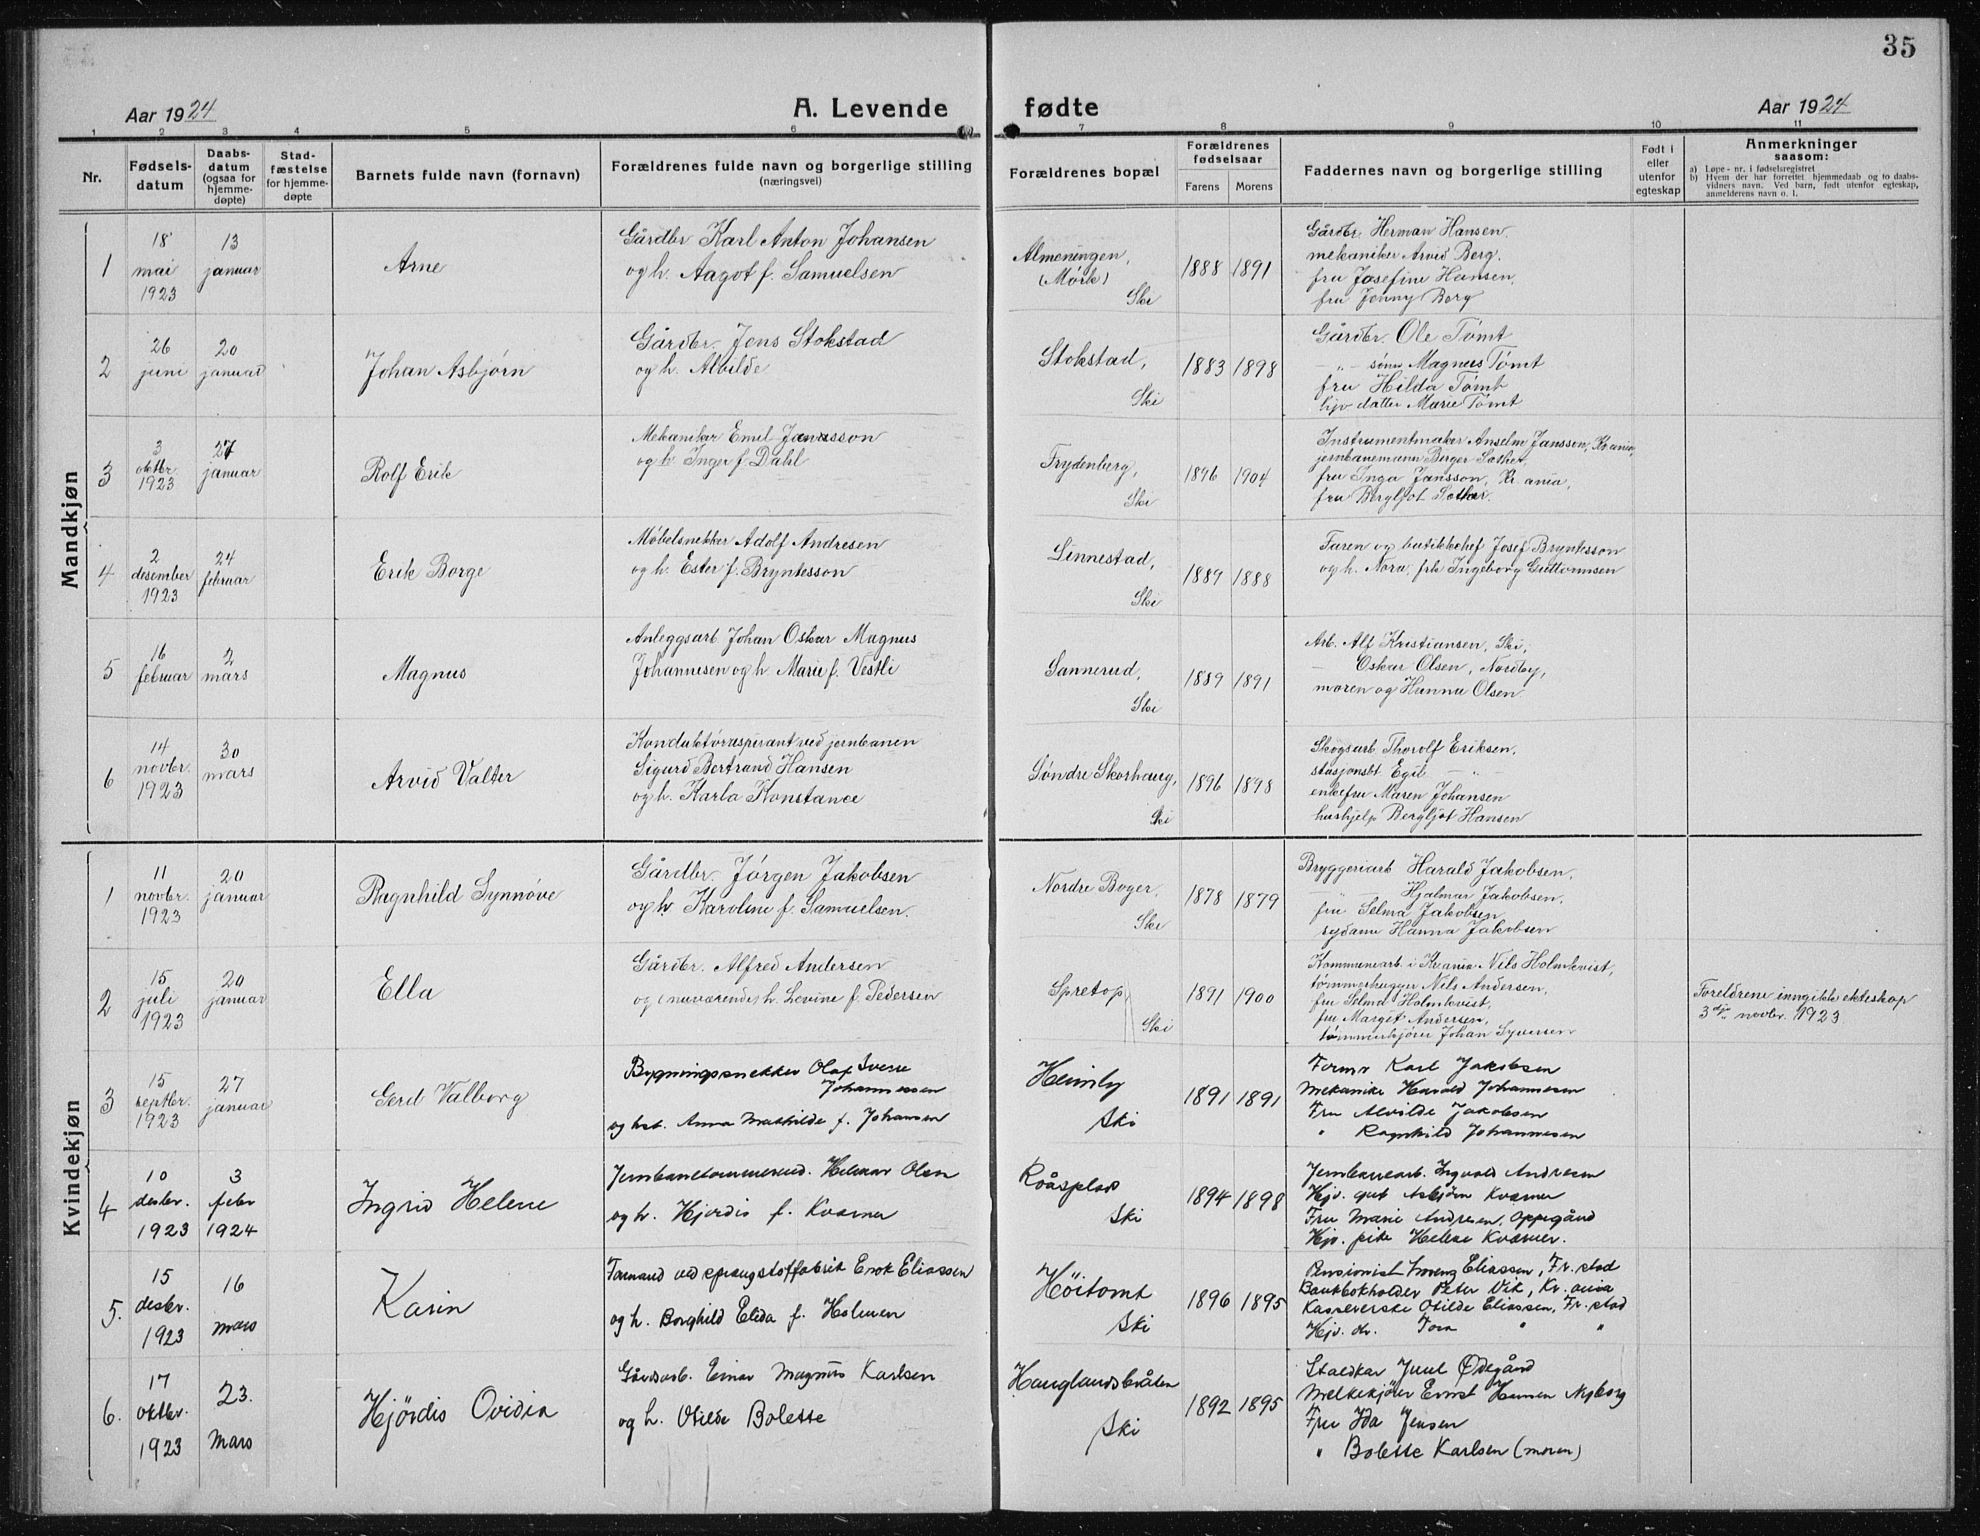 35
Aar 1924
A. Levende fødte
Aar 1924
1 2 3 4 5 6 7 8 9 10 11
Nr.
Fødsels-
datum
Daabs-
datum
(ogsaa for
hjemme-
døpte)
Stad-
fæstelse
for hjemme-
døpte
Barnets fulde navn (fornavn)
Forældrenes fulde navn og borgerlige stilling
(næringsvei)
Forældrenes bopæl
Forældrenes
fødselsaar
Farens Morens
Faddernes navn og borgerlige stilling
Født i
eller
utenfor
egteskap
Anmerkninger
saasom:
a) Løpe-nr. i fødselsregistret
b) Hvem der har forrettet hjemmedaab og to daabs-
vidners navn. Ved barn, født utenfor egteskap,
anmelderens navn o. l.
Mandkjøn
1
18
mai
1923
13
januar
Arne
Gårdbr Karl Anton Johansen
og h. Aagot f. Samuelsen
Almeningen,
(Mørk)
Ski
1888 1891
Gårdbr. Herman Hansen,
mekaniker Arvid Berg.
fru Josefine Hansen,
fru Jenny Berg
2
26
juni
20
januar
Johan Asbjørn
Gårdbr. Jens Stokstad
og h. Alvilde
Stokstad,
Ski
1883 1898
Gårdbr. Ole Tømt
— " — sønn Magnus Tømt
fru Hilda Tømt
hjv datter Marie Tømt
3
3
oktbr.
1923
27
januar
Rolf Erik
Mekaniker Emil Jansson
og h. Inger f. Dahl
Frydenberg,
Ski
1896 1904
Instrumentmaker Anselm Jansson, Kr.ania,
jernbanemann Berger Sæther,
fru Inga Jansson, Kr.ania,
fru Bergljot Sæther.
4
2
desember
1923
24
februar
Erik Borge
Møbelsnekker Adolf Andresen
og h. Ester f. Bryntesson
Linnestad,
Ski
1889 1888
Faren og butikkchef Josef Bryntesson
og h. Nora, frk Ingeborg Guttormsen
5
16
februar
2
mars
Magnus
Anleggsarb. Johan Oskar Magnus
Johannesen og h Marie f. Vestli
Sannerud,
Ski
1889 1891
Arb. Alf Kristiansen, Ski,
— Oskar Olsen, Nordby,
moren og Hanna Olsen
6
14
novbr.
1923
30
mars
Arvid Valter
Konduktøraspirant ved jernbanen
Sigurd Bertrand Hansen
og h. Karla Konstance
Søndre Skorhaug,
Ski
1896 1898
Skogsarb Thorolf Eriksen,
stasjonsbt Egil — " —
enkefru Maren Johansen
hushjelp Bergljot Hansen
Kvindekjøn
1
11
novbr.
1923
20
januar
Ragnhild Synnøve
Gårdbr. Jørgen Jakobsen
og h Karoline f. Samuelsen.
Nordre Boger,
Ski
1878 1879
Bryggeriarb Harald Jakobsen,
— " — Hjalmar Jakobsen,
fru Selma Jakobsen
sydame Hanna Jakobsen
2
15
juli
1923
20
januar
Ella
Gårdbr. Alfred Andersen
og (nuværende) h. Levine f. Pedersen
Spretop,
Ski
1891 1900
Kommunearb. i Kr.ania Nils Holmkvist,
tømmerhugger Nils Andersen,
fru Selma Holmkvist,
fru Margit Andersen,
tømmerkjører Johan Syversen
Foreldrene inngikk ekteskap
3dje novbr. 1923
3
15
septbr.
1923
27
januar
Gerd Valborg
Bygningssnekker Olaf Sverre
Johannessen
og hst. Anna Mathilde f. Johansen
Heimly
Ski
1891 1891
Former Karl Jakobsen
Mekanike Harald Johannesen
Fru Alvilde Jakobsen
" Ragnhild Johannesen
4
10
desbr.
1923
3
febr
1924
Ingrid Helene
Jernbanetømmermd. Helmar Olsen
og h. Hjørdis f. Kværner
Roåsplass
Ski
1894 1898
Jernbanearb. Ingvald Andresen
Hjv. gut Asbjørn Kværner
Fru Marie Andresen, Oppegård
Hjv. pike Helene Kværner.
5.
15
desbr.
1923
16
mars
Karin
Formand ved sprængstoffabrik Enok Eliassen
og h. Borghild Elida f. Holmen
Høitomt
Ski
1896 1895
Pensionist Lorenz Eliassen, Fr.stad
Bankbokholder Peter Vik, Kr.ania
Kassererske Otilde Eliassen, Fr.stad
Hjv. dr. Tora " "
6.
17
oktbr.
1923
23.
Mars
Hjørdis Ovidia
Gårdsarb. Einar Magnus Karlsen
og h. Otilde Bolette
Hauglandsbråten
Ski
1892 1895
Staldkar Juul Ødegård
Melkekjører Ernst Hansen Nyborg
Fru Ida Jensen
" Bolette Karlsen (moren)